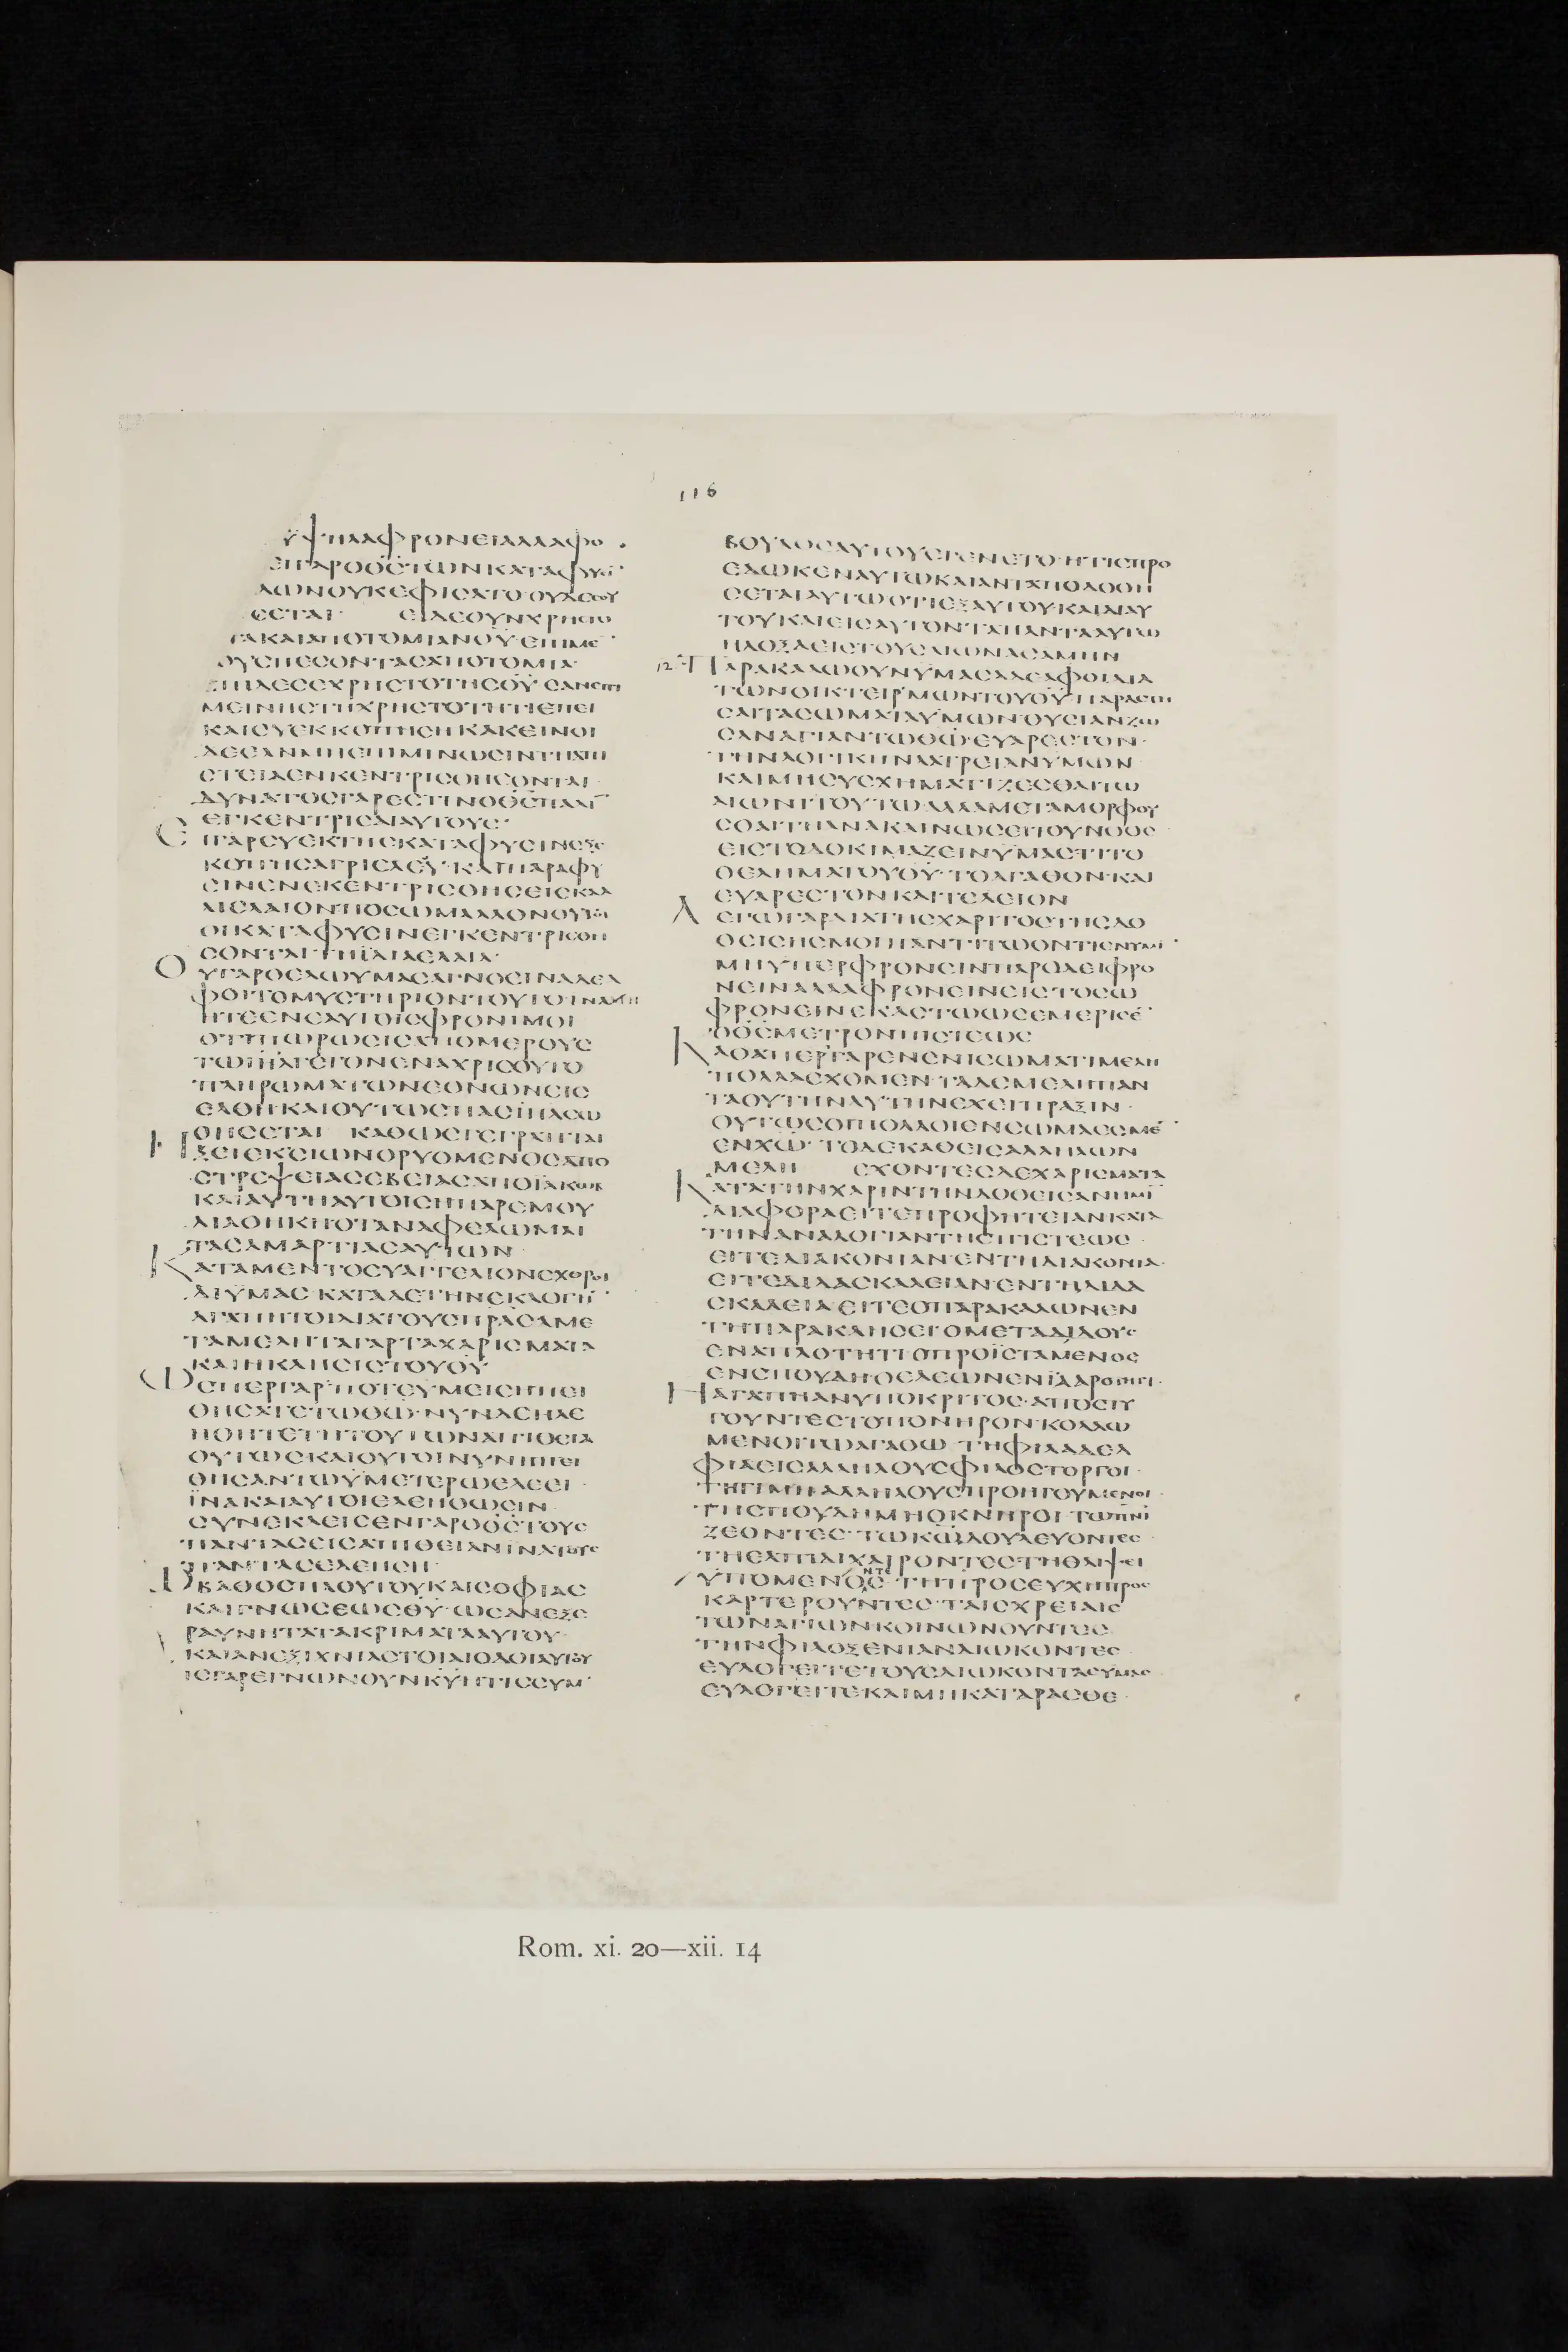 116
ΥΨΗΛΑΦΡΟΝΕΙΑΛΛΑΦΟ
ΕΙΓΑΡΟΘΣΤΩΝΚΑΤΑΦΥΣΙ
ΔΩΝΟΥΚΕΦΙΣΑΤΟ·ΟΥΔΕΣΟΥ
ΕΣΤΑΙ ΕΙΔΕΟΥΝΧΡΗΣΤΟ
ΤΑΚΑΙΑΠΟΤΟΜΙΑΝΘΥ·ΕΠΙΜΕ
ΟΥΣΠΕΣΟΝΤΑΣΑΠΟΤΟΜΙΑ·
ΕΠΙΔΕΣΕΧΡΗΣΤΟΤΗΣΘΥ·ΕΑΝΕΠΙ
ΜΕΙΝΗΣΤΗΧΡΗΣΤΟΤΗΤΙΕΠΕΙ
ΚΑΙΣΥΕΚΚΟΠΗΣΗΚΑΚΕΙΝΟΙ
ΔΕΕΑΝΜΗΕΠΙΜΙΝΩΣΙΝΤΗΑΠΙ
ΣΤΕΙΑΕΝΚΕΝΤΡΙΣΘΗΣΟΝΤΑΙ·
ΔΥΝΑΤΟΣΓΑΡΕΣΤΙΝΟΘΣΠΑΛΙ
ΕΓΚΕΝΤΡΙΣΑΙΑΥΤΟΥΣ·
ΕΙΓΑΡΣΥΕΚΤΗΣΚΑΤΑΦΥΣΙΝΕΞΕ
ΚΟΠΗΣΑΓΡΙΕΛΕΟΥ·ΚΑΙΠΑΡΑΦΥ
ΣΙΝΕΝΕΚΕΝΤΡΙΣΘΗΣΕΙΣΚΑΛ
ΛΙΕΛΑΙΟΝΠΟΣΩΜΑΛΛΟΝΟΥΤΟΙ
ΟΙΚΑΤΑΦΥΣΙΝΕΓΚΕΝΤΡΙΣΘΗ
ΣΟΝΤΑΙΤΗΪΔΙΑΕΛΑΙΑ·
ΟΥΓΑΡΘΕΛΩΥΜΑΣΑΓΝΟΕΙΝΑΔΕΛ
ΦΟΙΤΟΜΥΣΤΗΡΙΟΝΤΟΥΤΟ·ΙΝΑΜΗ
ΗΤΕΕΝΕΑΥΤΟΙΣΦΡΟΝΙΜΟΙ
ΟΤΙΠΩΡΩΣΙΣΑΠΟΜΕΡΟΥΣ
ΤΩΙΗΛΓΕΓΟΝΕΝΑΧΡΙΣΟΥΤΟ
ΠΛΗΡΩΜΑΤΩΝΕΘΝΩΝΕΙΣ
ΕΛΘΗΚΑΙΟΥΤΩΣΠΑΣΙΗΛΣΩ
ΘΗΣΕΤΑΙ ΚΑΘΩΣΓΕΓΡΑΠΤΑΙ
ΗΞΕΙΕΚΣΙΩΝΟΡΥΟΜΕΝΟΣΑΠΟ
ΣΤΡΕΨΕΙΑΣΕΒΕΙΑΣΑΠΟΪΑΚΩΒ
ΚΑΙΑΥΤΗΑΥΤΟΙΣΗΠΑΡΕΜΟΥ
ΔΙΑΘΗΚΗΟΤΑΝΑΦΕΛΩΜΑΙ
ΤΑΣΑΜΑΡΤΙΑΣΑΥΤΩΝ
ΚΑΤΑΜΕΝΤΟΕΥΑΓΓΕΛΙΟΝΕΧΘΡΟΙ
ΔΙΥΜΑΣ·ΚΑΤΑΔΕΤΗΝΕΚΛΟΓΗ
ΑΓΑΠΗΤΟΙΔΙΑΤΟΥΣΠΡΑΣΑΜΕ
ΤΑΜΕΛΗΤΑΓΑΡΤΑΧΑΡΙΣΜΑΤΑ
ΚΑΙΗΚΛΗΣΙΣΤΟΥΘΥ
ΩΣΠΕΡΓΑΡΠΟΤΕΥΜΕΙΣΗΠΕΙ
ΘΗΣΑΤΕΤΩΘΩ·ΝΥΝΑΕΗΛΕ
ΗΘΗΤΕΤΗΤΟΥΤΩΝΑΠΙΘΕΙΑ
ΟΥΤΩΣΚΑΙΟΥΤΟΙΝΥΝΗΠΕΙ
ΘΗΣΑΝΤΩΥΜΕΤΕΡΩΕΛΕΕΙ
ΪΝΑΚΑΙΑΥΤΟΙΕΛΕΗΘΩΣΙΝ
ΣΥΝΕΚΛΕΙΣΕΝΓΑΡΟΘΣΤΟΥΣ
ΠΑΝΤΑΣΕΙΣΑΠΙΘΕΙΑΝΙΝΑΤΟΥΣ
ΠΑΝΤΑΣΕΛΕΗΣΗ
ΩΒΑΘΟΣΠΛΟΥΤΟΥΚΑΙΣΟΦΙΑΣ
ΚΑΙΓΝΩΣΕΩΣΘΥ·ΩΣΑΝΕΞΕ
ΡΑΥΝΗΤΑΤΑΚΡΙΜΑΤΑΑΥΤΟΥ
ΚΑΙΑΝΕΞΙΧΝΙΑΣΤΟΙΑΙΟΔΟΙΑΥΤΟΥ
ΤΙΣΓΑΡΕΓΝΩΝΟΥΝΚΥ·ΗΤΙΣΣΥΜ
ΒΟΥΛΟΣΑΥΤΟΥΕΓΕΝΕΤΟ·ΗΤΙΣΠΡΟ
ΕΔΩΚΕΝΑΥΤΩΚΑΙΑΝΤΑΠΟΔΟΘΗ
ΣΕΤΑΙΑΥΤΩΟΤΙΕΞΑΥΤΟΥΚΑΙΔΙΑΥ
ΤΟΥΚΑΙΕΙΣΑΥΤΟΝΤΑΠΑΝΤΑΑΥΤΩ
ΗΔΟΞΑΕΙΣΤΟΥΣΑΙΩΝΑΣΑΜΗΝ
12 ΠΑΡΑΚΑΛΩΟΥΝΥΜΑΣΑΔΕΛΦΟΙΔΙΑ
ΤΩΝΟΙΚΤΕΙΡΜΩΝΤΟΥΘΥ·ΠΑΡΑΣΤΗ
ΣΑΙΤΑΣΩΜΑΤΑΥΜΩΝΘΥΣΙΑΝΖΩ
ΣΑΝΑΓΙΑΝΤΩΘΩ·ΕΥΑΡΕΣΤΟΝ·
ΤΗΝΛΟΓΙΚΗΝΛΑΤΡΕΙΑΝΥΜΩΝ
ΚΑΙΜΗΣΥΣΧΗΜΑΤΙΖΕΣΘΑΙΤΩ
ΑΙΩΝΙΤΟΥΤΩΑΛΛΑΜΕΤΑΜΟΡΦΟΥ
ΣΘΑΙΤΗΑΝΑΚΑΙΝΩΣΕΙΤΟΥΝΟΟΣ
ΕΙΣΤΟΔΟΚΙΜΑΖΕΙΝΥΜΑΣΤΙΤΟ
ΘΕΛΗΜΑΤΟΥΘΥ·ΤΟΑΓΑΘΟΝ·ΚΑΙ
ΕΥΑΡΕΣΤΟΝΚΑΙΤΕΛΕΙΟΝ
ΛΕΓΩΓΑΡΔΙΑΤΗΣΧΑΡΙΤΟΣΤΗΣΔΟ
ΘΕΙΣΗΣΜΟΙΠΑΝΤΙΤΩΟΝΤΙΕΝΥΜΙ
ΜΗΥΠΕΡΦΡΟΝΕΙΝΠΑΡΟΔΕΙΦΡΟ
ΝΕΙΝΑΛΛΑΦΡΟΝΕΙΝΕΙΣΤΟΣΩ
ΦΡΟΝΕΙΝΕΚΑΣΤΩΩΣΕΜΕΡΙΣΕ
ΟΘΣΜΕΤΡΟΝΠΙΣΤΕΩΣ
ΚΑΘΑΠΕΡΓΑΡΕΝΕΝΙΣΩΜΑΤΙΜΕΛΗ
ΠΟΛΛΑΕΧΟΜΕΝ·ΤΑΔΕΜΕΛΗΠΑΝ
ΤΑΟΥΤΗΝΑΥΤΗΝΕΧΕΙΠΡΑΞΙΝ·
ΟΥΤΩΣΟΙΠΟΛΛΟΙΕΝΣΩΜΑΕΣΜΕ
ΕΝΧΩ·ΤΟΔΕΚΑΘΕΙΣΑΛΛΗΛΩΝ
ΜΕΛΗ ΕΧΟΝΤΕΣΔΕΧΑΡΙΣΜΑΤΑ
ΚΑΤΑΤΗΝΧΑΡΙΝΤΗΝΔΟΘΕΙΣΑΝΗΜΙ
ΔΙΑΦΟΡΑΕΙΤΕΠΡΟΦΗΤΕΙΑΝΚΑΤΑ
ΤΗΝΑΝΑΛΟΓΙΑΝΤΗΣΠΙΣΤΕΩΣ·
ΕΙΤΕΔΙΑΚΟΝΙΑΝ·ΕΝΤΗΔΙΑΚΟΝΙΑ·
ΕΙΤΕΔΙΔΑΣΚΑΛΕΙΑΝ·ΕΝΤΗΔΙΔΑ
ΣΚΑΛΕΙΑΕΙΤΕΟΠΑΡΑΚΑΛΩΝΕΝ
ΤΗΠΑΡΑΚΛΗΣΕΙΟΜΕΤΑΔΙΔΟΥΣ
ΕΝΑΠΛΟΤΗΤΙΟΠΡΟΪΣΤΑΜΕΝΟΣ
ΕΝΣΠΟΥΔΗΟΕΛΕΩΝΕΝΙΛΑΡΟΤΗΤΙ·
ΗΑΓΑΠΗΑΝΥΠΟΚΡΙΤΟΣ·ΑΠΟΣΤΥ
ΓΟΥΝΤΕΣΤΟΠΟΝΗΡΟΝ·ΚΟΛΛΩ
ΜΕΝΟΙΤΩΑΓΑΘΩ ΤΗΦΙΛΑΔΕΛ
ΦΙΑΕΙΣΑΛΛΗΛΟΥΣΦΙΛΟΣΤΟΡΓΟΙ·
ΤΗΤΙΜΗΑΛΛΗΛΟΥΣΠΡΟΗΓΟΥΜΕΝΟΙ·
ΤΗΣΠΟΥΔΗΜΗΟΚΝΗΡΟΙ·ΤΩΠΝΙ
ΖΕΟΝΤΕΣ·ΤΩΚΩΔΟΥΛΕΥΟΝΤΕΣ
ΤΗΕΛΠΙΔΙΧΑΙΡΟΝΤΕΣΤΗΘΛΙΨΕΙ
ΝΤΕ
ΥΠΟΜΕΝΟΣ·ΤΗΠΡΟΣΕΥΧΗΠΡΟΣ
ΚΑΡΤΕΡΟΥΝΤΕΣ·ΤΑΙΣΧΡΕΙΑΙΣ
ΤΩΝΑΓΙΩΝΚΟΙΝΩΝΟΥΝΤΕΣ
ΤΗΝΦΙΛΟΞΕΝΙΑΝΔΙΩΚΟΝΤΕΣ
ΕΥΛΟΓΕΙΤΕΤΟΥΣΔΙΩΚΟΝΤΑΣΥΜΑΣ
ΕΥΛΟΓΕΙΤΕΚΑΙΜΗΚΑΤΑΡΑΣΘΕ·
Rom. xi. 20—xii. 14